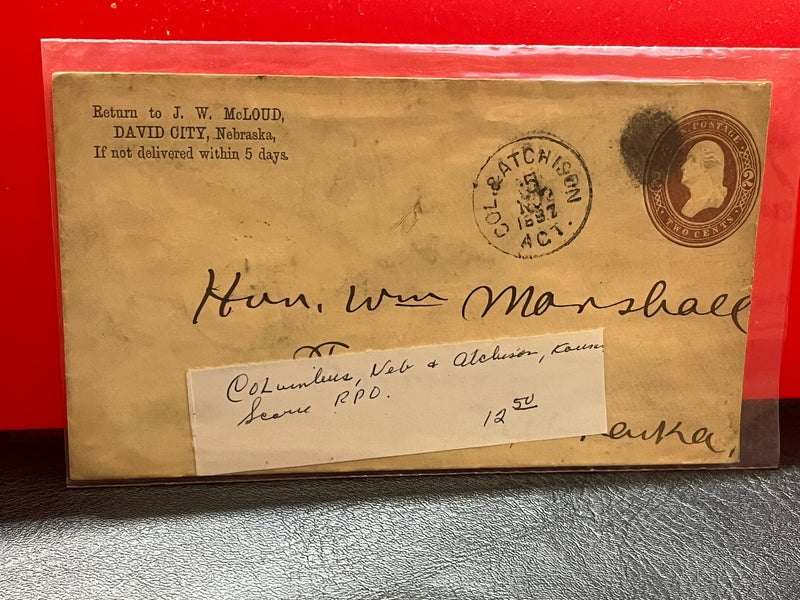 Return to J. W. McLOUD,
DAVID CITY, Nebraska,
If not delivered within 5 days.
COL. & ATCHISON
5
1887
ACT.
U.S. POSTAGE
2
TWO CENTS
Hon. Wm Marshall
Columbus, Neb & Atchison, Kansas
Scarce RPO.
12 50